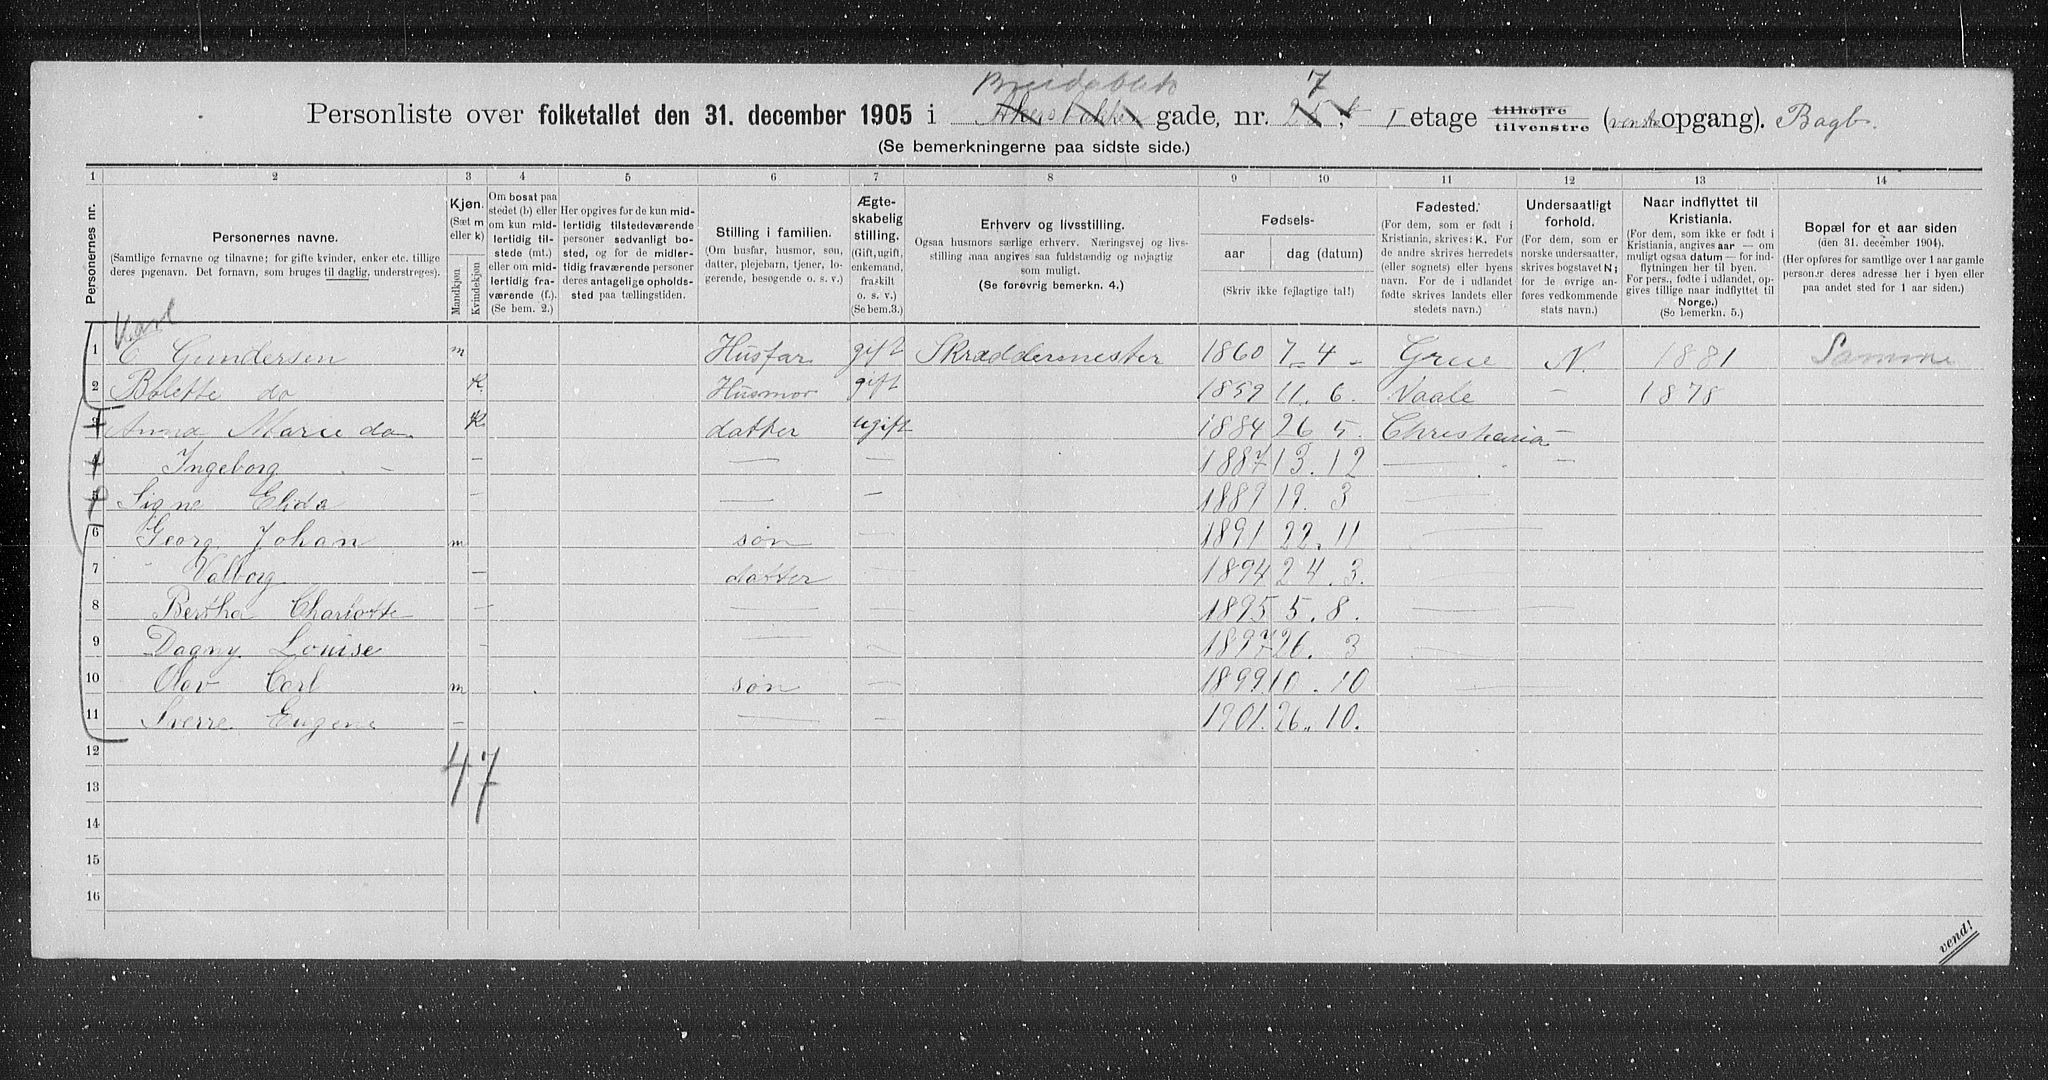 Breidablik 7
Personliste over folketallet den 31. december 1905 i gade, nr. 25, I etage tilhøjre tilvenstre (venstre opgang). Bagb.
(Se bemerkningerne paa sidste side.)
1 2 3 4 5 6 7 8 9 10 11 12 13 14
Personernes nr.
Personernes navne.
(Samtlige fornavne og tilnavne; for gifte kvinder, enker etc. tillige deres pigenavn. Det fornavn, som bruges til daglig, understreges).
Kjøn.
(Sæt m eller k)
Mandkjøn
Kvindekjøn
Om bosat paa stedet (b) eller om kun midlertidig tilstede (mt.) eller om midlertidig fraværende (f.). (Se bem. 2.)
Her opgives for de kun midlertidig tilstedeværende personer sedvanligt bosted, og for de midlertidig fraværende personer deres antagelige opholdssted paa tællingstiden.
Stilling i familien.
(Om husfar, husmor, søn, datter, plejebarn, tjener, logerende, besøgende o. s. v.)
Ægteskabelig stilling.
(Gift, ugift, enkemand, fraskilt o. s. v.)
(Se bem.3.)
Erhverv og livsstilling.
Ogsaa husmors særlige erhverv. Næringsvej og livsstilling maa angives saa fuldstændig og nøjagtig som muligt.
(Se forøvrig bemerkn. 4.)
Fødsels-
aar dag (datum)
(Skriv ikke fejlagtige tal!)
Fødested.
(For dem, som er født i Kristiania, skrives: K. For de andre skrives herredets (eller sognets) eller byens navn. For de i udlandet fødte skrives landets eller stedets navn.)
Undersaatligt forhold.
(For dem, som er norske undersaatter, skrives bogstavet N; for de øvrige angives vedkommende stats navn.)
Naar indflyttet til Kristiania.
(For dem, som ikke er født i Kristiania, angives aar — om muligt ogsaa datum — for indflytningen her til byen. For pers., fødte i udlandet, opgives tillige naar indflyttet til Norge.)
(Se bemerkn. 5.)
Bopæl for et aar siden
(den 31. december 1904).
(Her opføres for samtlige over 1 aar gamle personer deres adresse her i byen eller paa andet sted for 1 aar siden.)
Karl
1 C Gundersen m Husfar gift Skræddermester 1860 7 - 4 - Grue N. 1881 Samme
2 Bolette do k. Husmor gift 1859 11. 6. Vaale — 1878
3 Anna Marie do. k datter ugift 1884 26 5. Christiania —
4 Ingeborg — — — 1887 13. 12 — —
5 Signe Elida — — — 1889 19. 3 —
6 Georg Johan m søn — 1891 22. 11 — —
7 Valborg — datter — 1894 24. 3. — —
8 Bertha Charlotte — — — 1895 5. 8. — —
9 Dagny Louise — — — 1897 26. 3 —
10 Olav Carl m søn — 1899. 10. 10 —
11 Sverre Eugene — — — 1901. 26. 10.
12
47
13
14
15
16
vend!